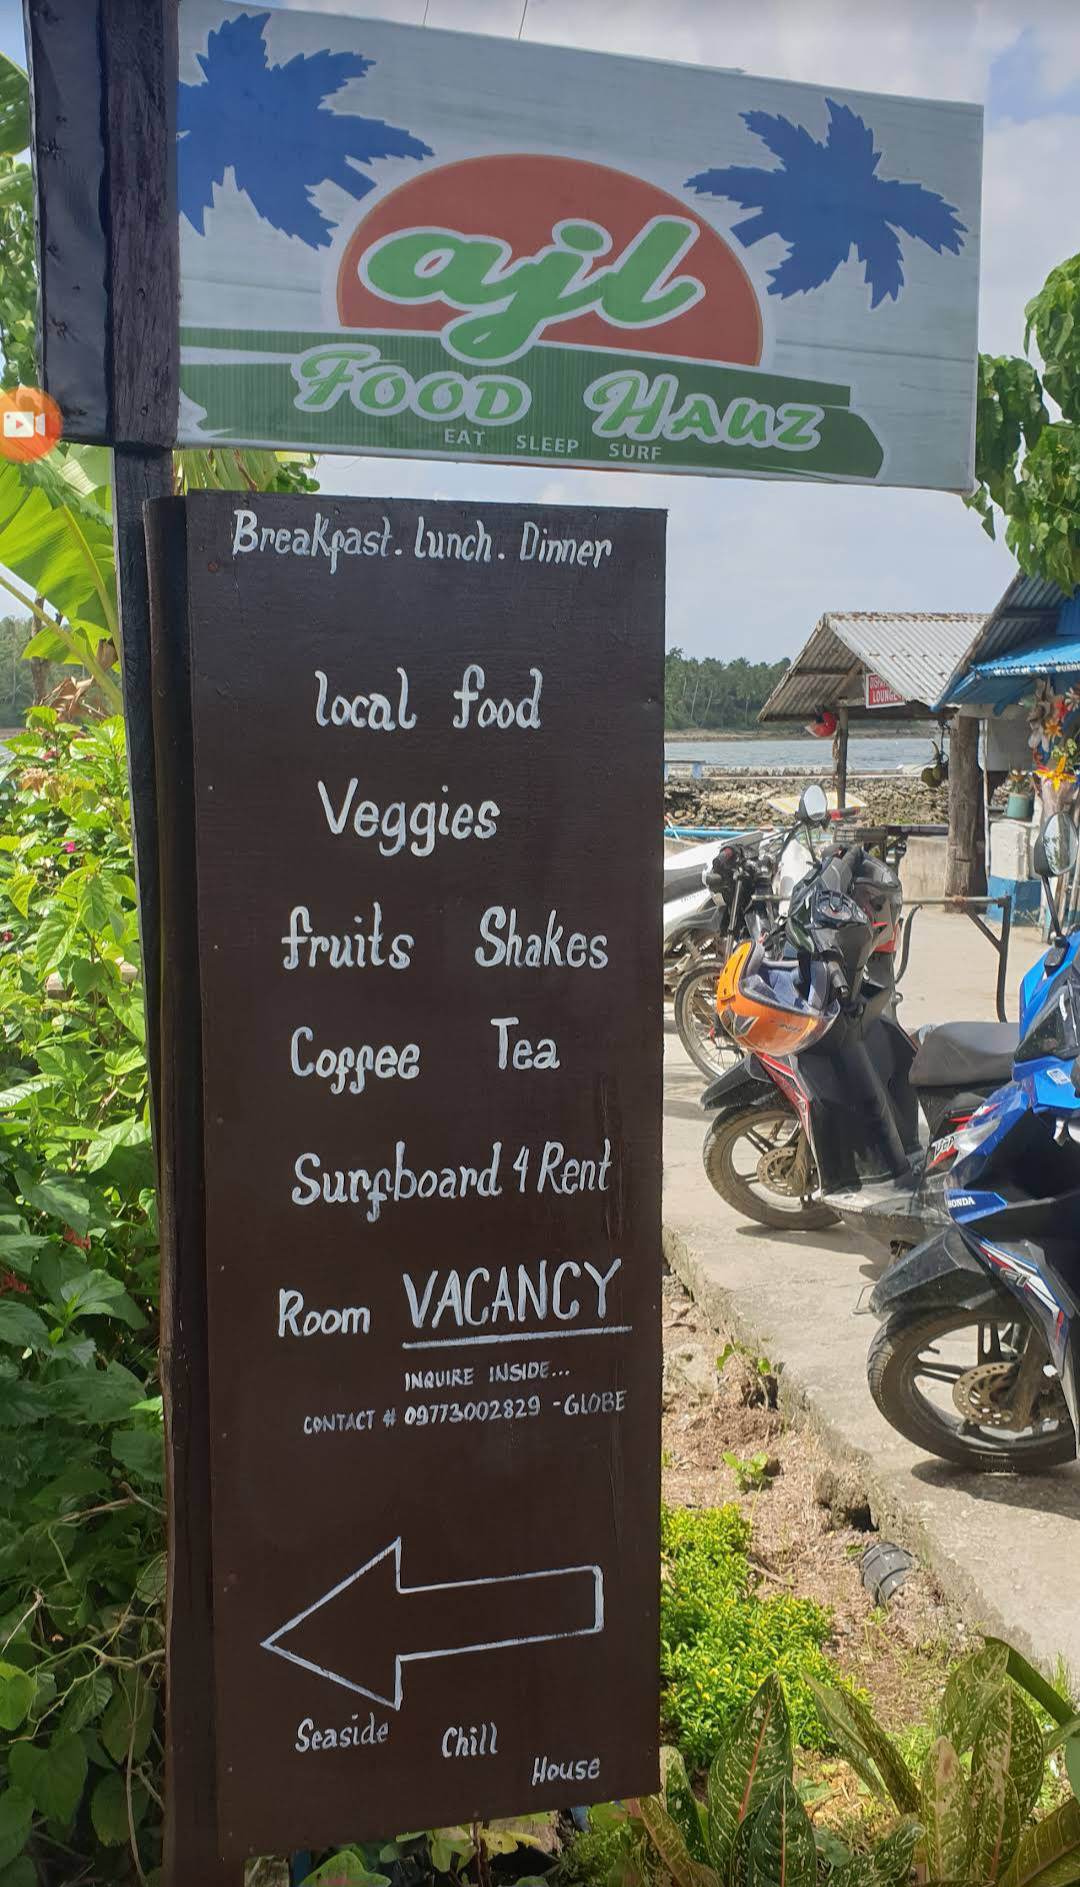 ajl
FOOD HAUZ
EAT SLEEP SURF
Breakfast. Lunch. Dinner
local food
Veggies
fruits Shakes
Coffee Tea
Surfboard 4 Rent
Room VACANCY
INQUIRE INSIDE...
CONTACT # 09773002829 - GLOBE
Seaside Chill
House
LOUNGE
HONDA